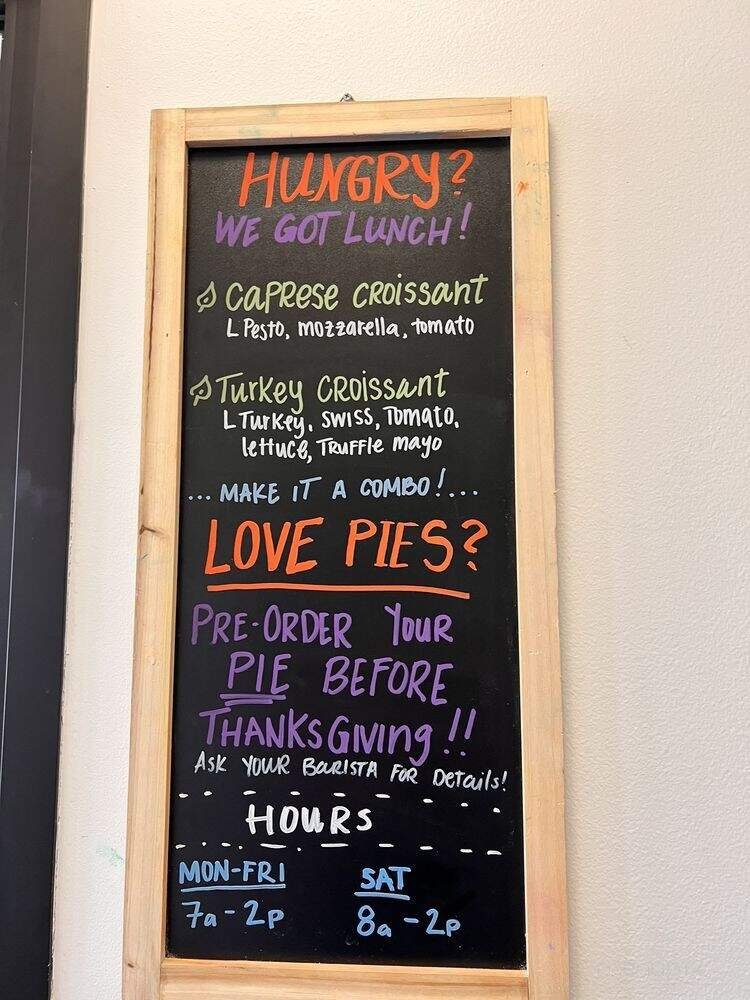 HUNGRY?
WE GOT LUNCH!
CAPRESE CROISSANT
Pesto, mozzarella, tomato
Turkey CROISSANT
Turkey, SWISS, Tomato,
lettuce, Truffle mayo
... MAKE IT A COMBO!...
LOVE PIES?
PRE-ORDER YOUR
PIE BEFORE
THANKSGIVING!!
ASK YOUR BARISTA FOR DETAILS!
HOURS
MON-FRI SAT
7a-2p 8a-2p